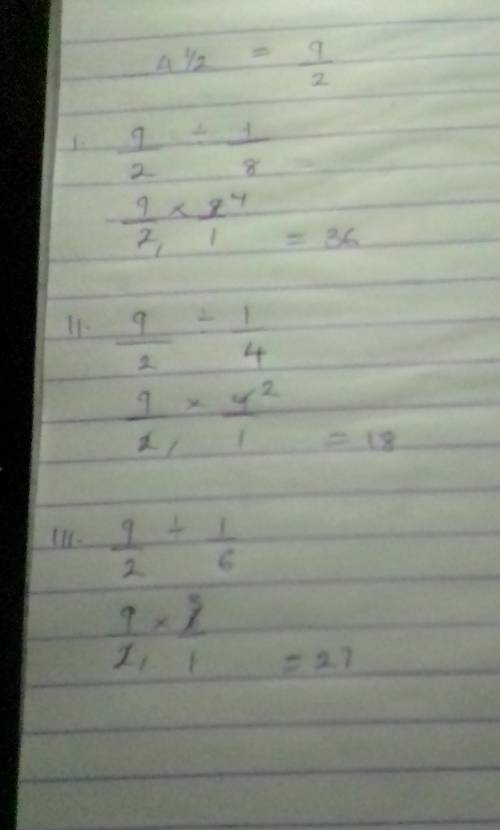 4 1/2 = 9/2
I. 9/2 ÷ 1/8
9/2, × 8 4/1 = 36
II. 9/2 ÷ 1/4
9/2, × 4 2/1 = 18
III. 9/2 ÷ 1/6
9/2, × 3/1 = 27